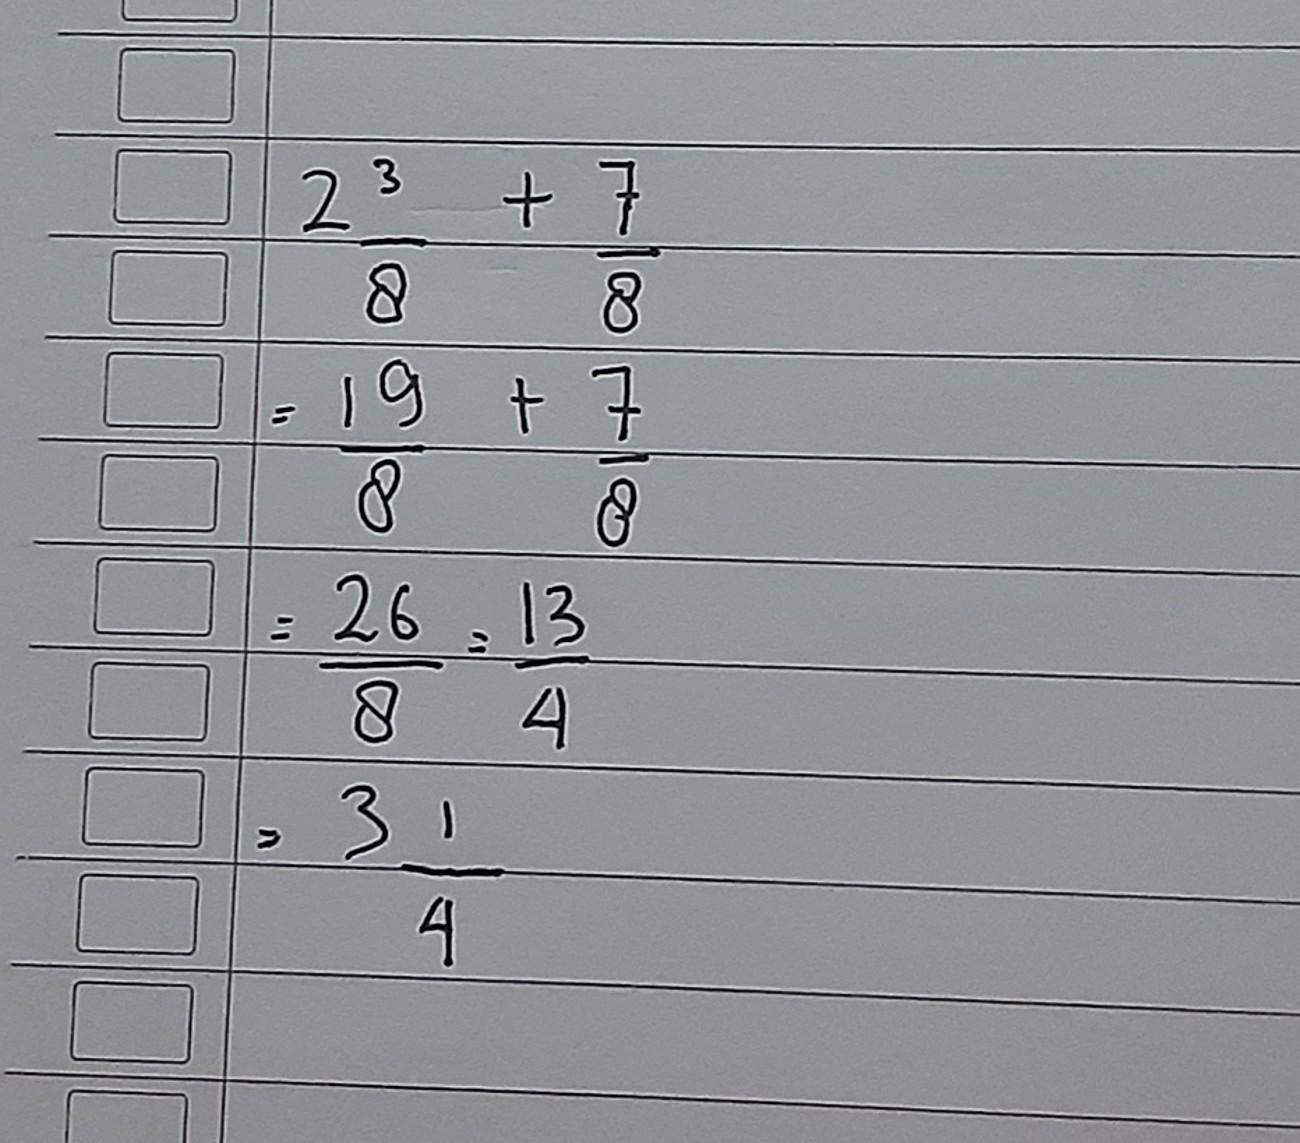 2 3/8 + 7/8
= 19/8 + 7/8
= 26/8 = 13/4
= 3 1/4